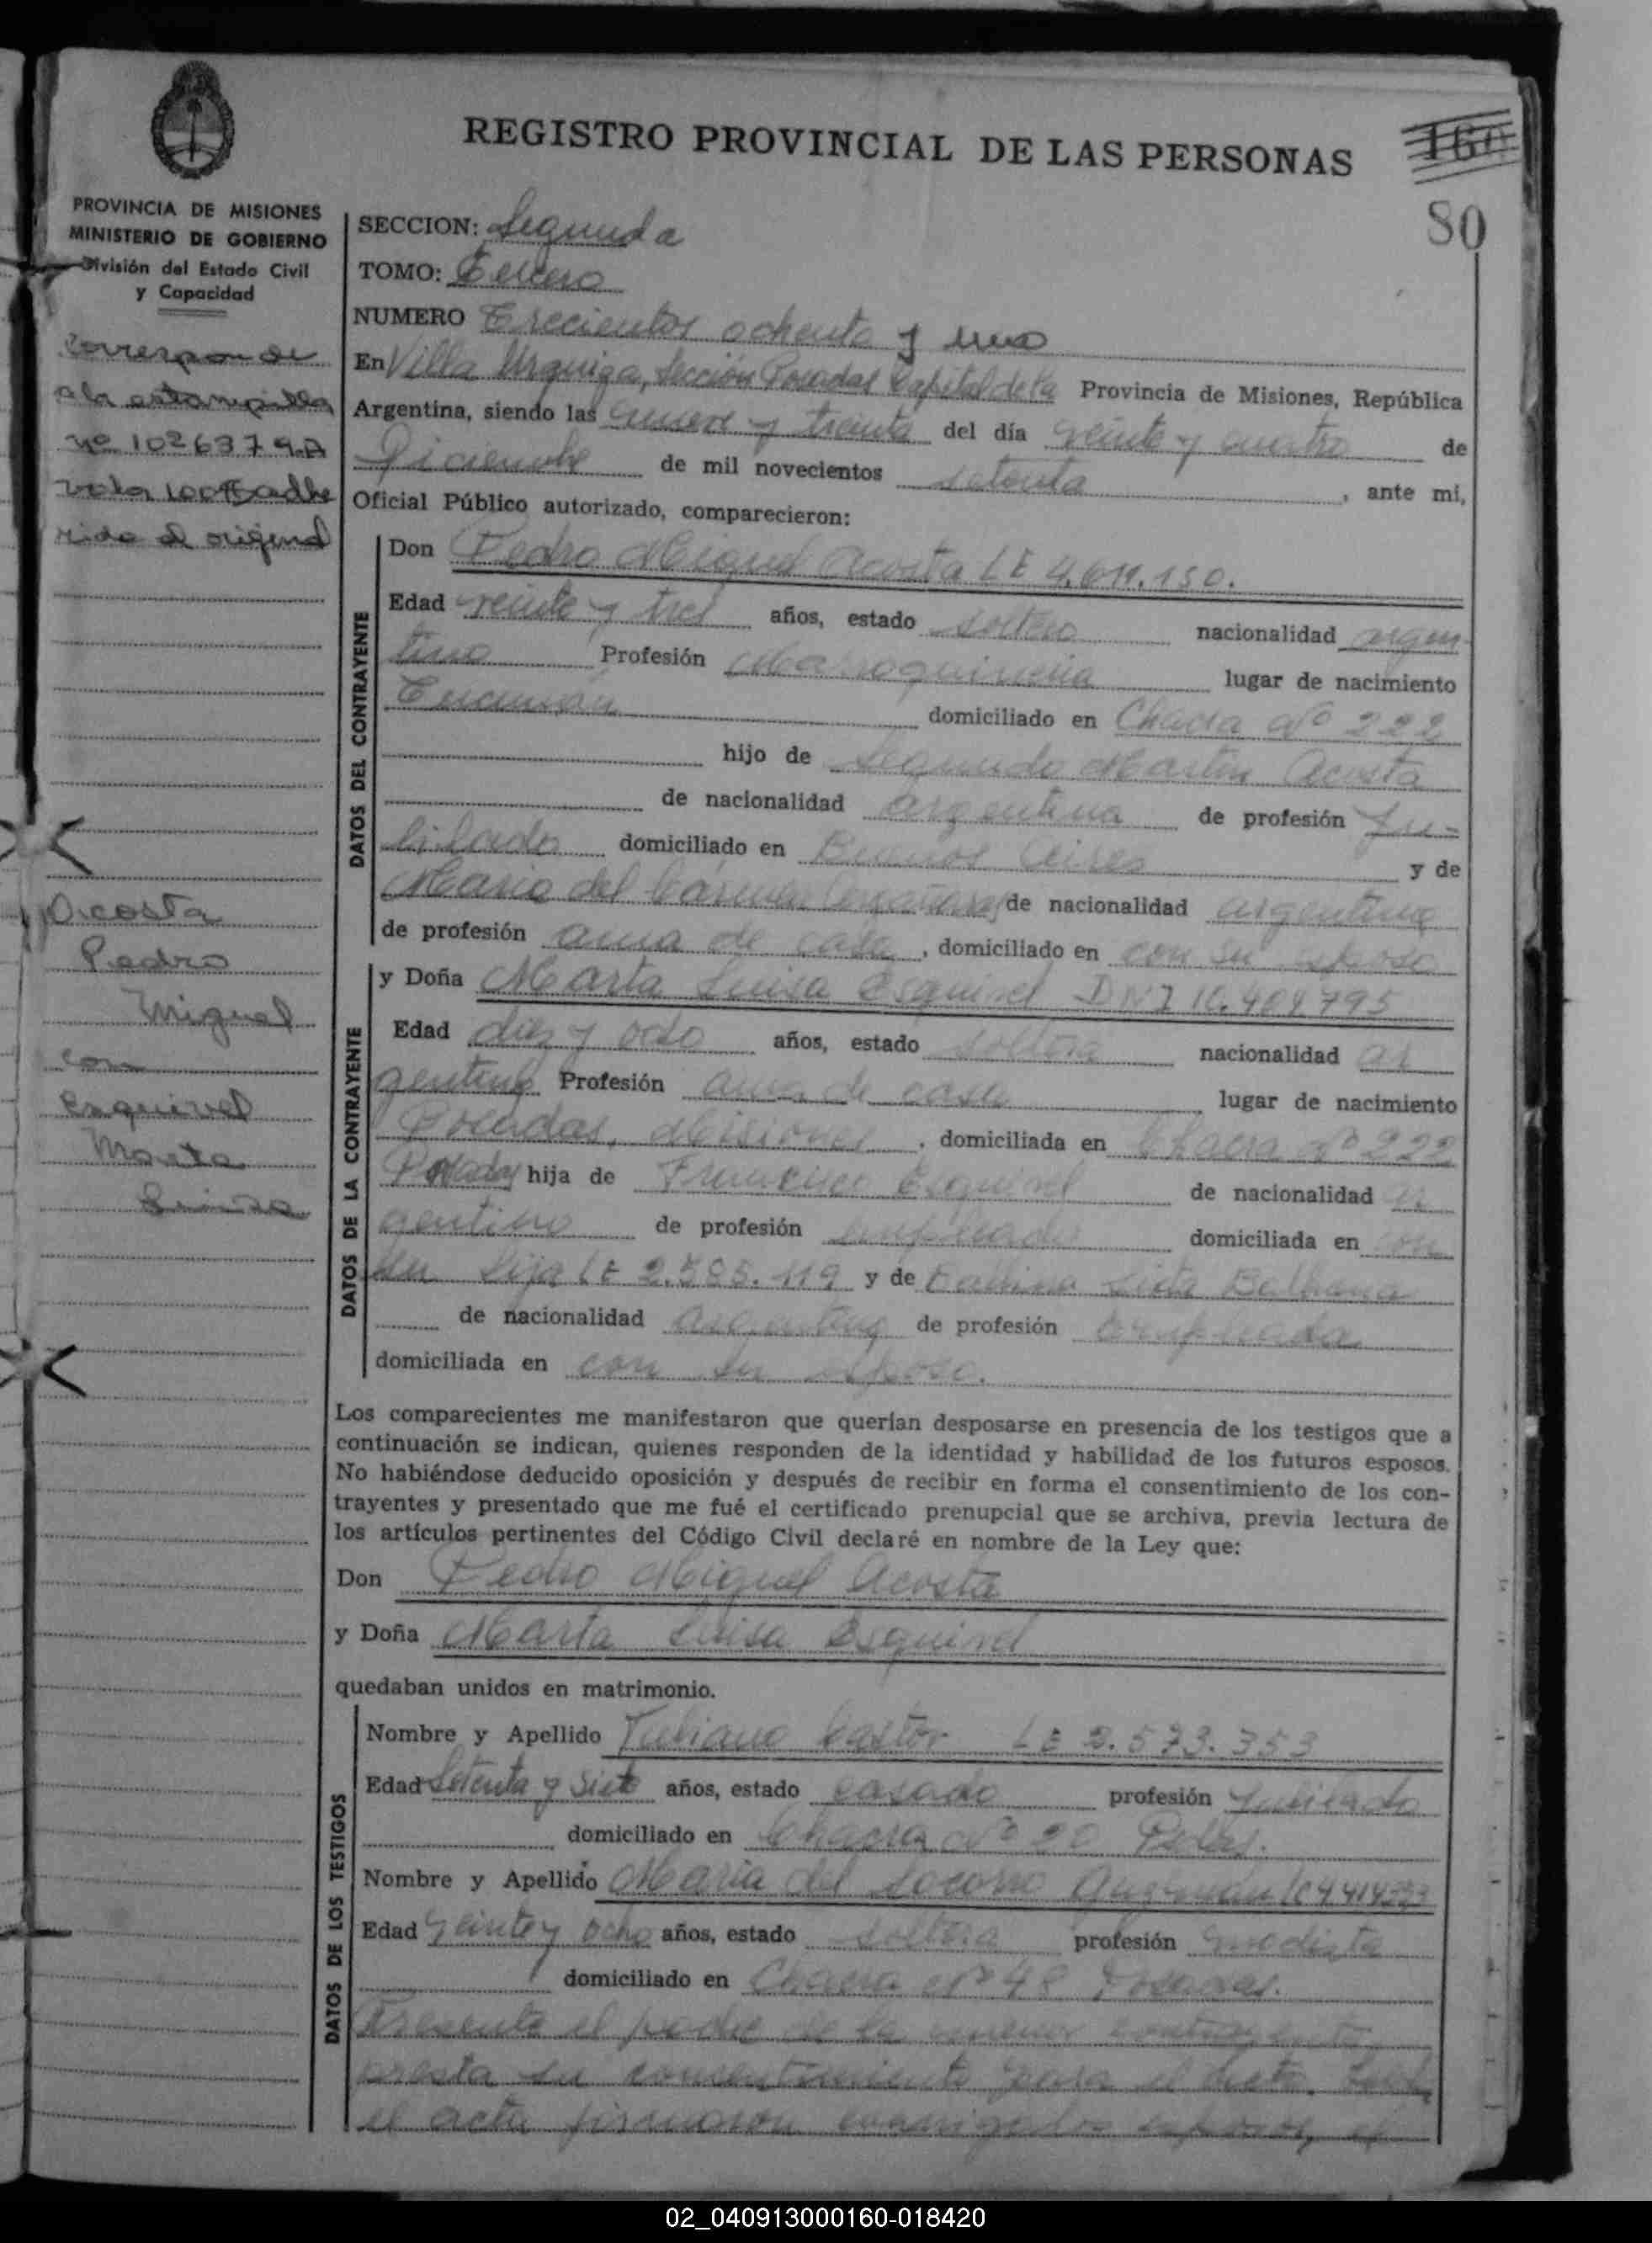 REGISTRO PROVINCIAL DE LAS PERSONAS
160
80
PROVINCIA DE MISIONES
MINISTERIO DE GOBIERNO
División del Estado Civil
y Capacidad
Corresponde
a la estampilla
nº 1026379A
valor 100 adhe
rida al original
Acosta
Pedro
Miguel
con
Esquivel
Marta
Luisa
SECCION: Segunda
TOMO: Tercero
NUMERO Trecientos ochenta y uno
En Villa Urquiza, Sección Posadas Capital de la Provincia de Misiones, República
Argentina, siendo las nueve y treinta del día veinte y cuatro de
Diciembre de mil novecientos setenta, ante mi,
Oficial Público autorizado, comparecieron:
DATOS DEL CONTRAYENTE
Don Pedro Miguel Acosta LE 4.611.150.
Edad veinte y tres años, estado soltero nacionalidad argen-
tino Profesión Marroquineria lugar de nacimiento
Tucumán domiciliado en Chacra Nº 222
hijo de Segundo Martín Acosta
de nacionalidad argentina de profesión Ju-
bilado domiciliado en Buenos Aires y de
María del Cármen de nacionalidad argentina
de profesión ama de casa, domiciliado en con su esposo
DATOS DE LA CONTRAYENTE
y Doña Marta Luisa Esquivel DNI 10.401.795
Edad diez y ocho años, estado soltera nacionalidad ar
gentina Profesión ama de casa lugar de nacimiento
Posadas, Misiones, domiciliada en Chacra Nº 222
Posadas hija de Francisco Esquivel de nacionalidad ar
gentino de profesión empleado domiciliada en con
su hija LE 2.385.119 y de Sixta
de nacionalidad argentina de profesión empleada
domiciliada en con su esposo.
Los comparecientes me manifestaron que querían desposarse en presencia de los testigos que a
continuación se indican, quienes responden de la identidad y habilidad de los futuros esposos.
No habiéndose deducido oposición y después de recibir en forma el consentimiento de los con-
trayentes y presentado que me fué el certificado prenupcial que se archiva, previa lectura de
los artículos pertinentes del Código Civil declaré en nombre de la Ley que:
Don Pedro Miguel Acosta
y Doña Marta Luisa Esquivel
quedaban unidos en matrimonio.
DATOS DE LOS TESTIGOS
Nombre y Apellido Juliano Castor LE 2.573.353
Edad Setenta y Siete años, estado casado profesión Jubilado
domiciliado en Chacra Nº 20 Pdas.
Nombre y Apellido María del Socorro
Edad Veinte y Ocho años, estado soltera profesión modista
domiciliado en Chacra Nº 48 Posadas.
Presente el padre de la menor contrayente
presta su consentimiento para el acto. Leida
el acta firmaron conmigo los esposos, el
02_040913000160-018420